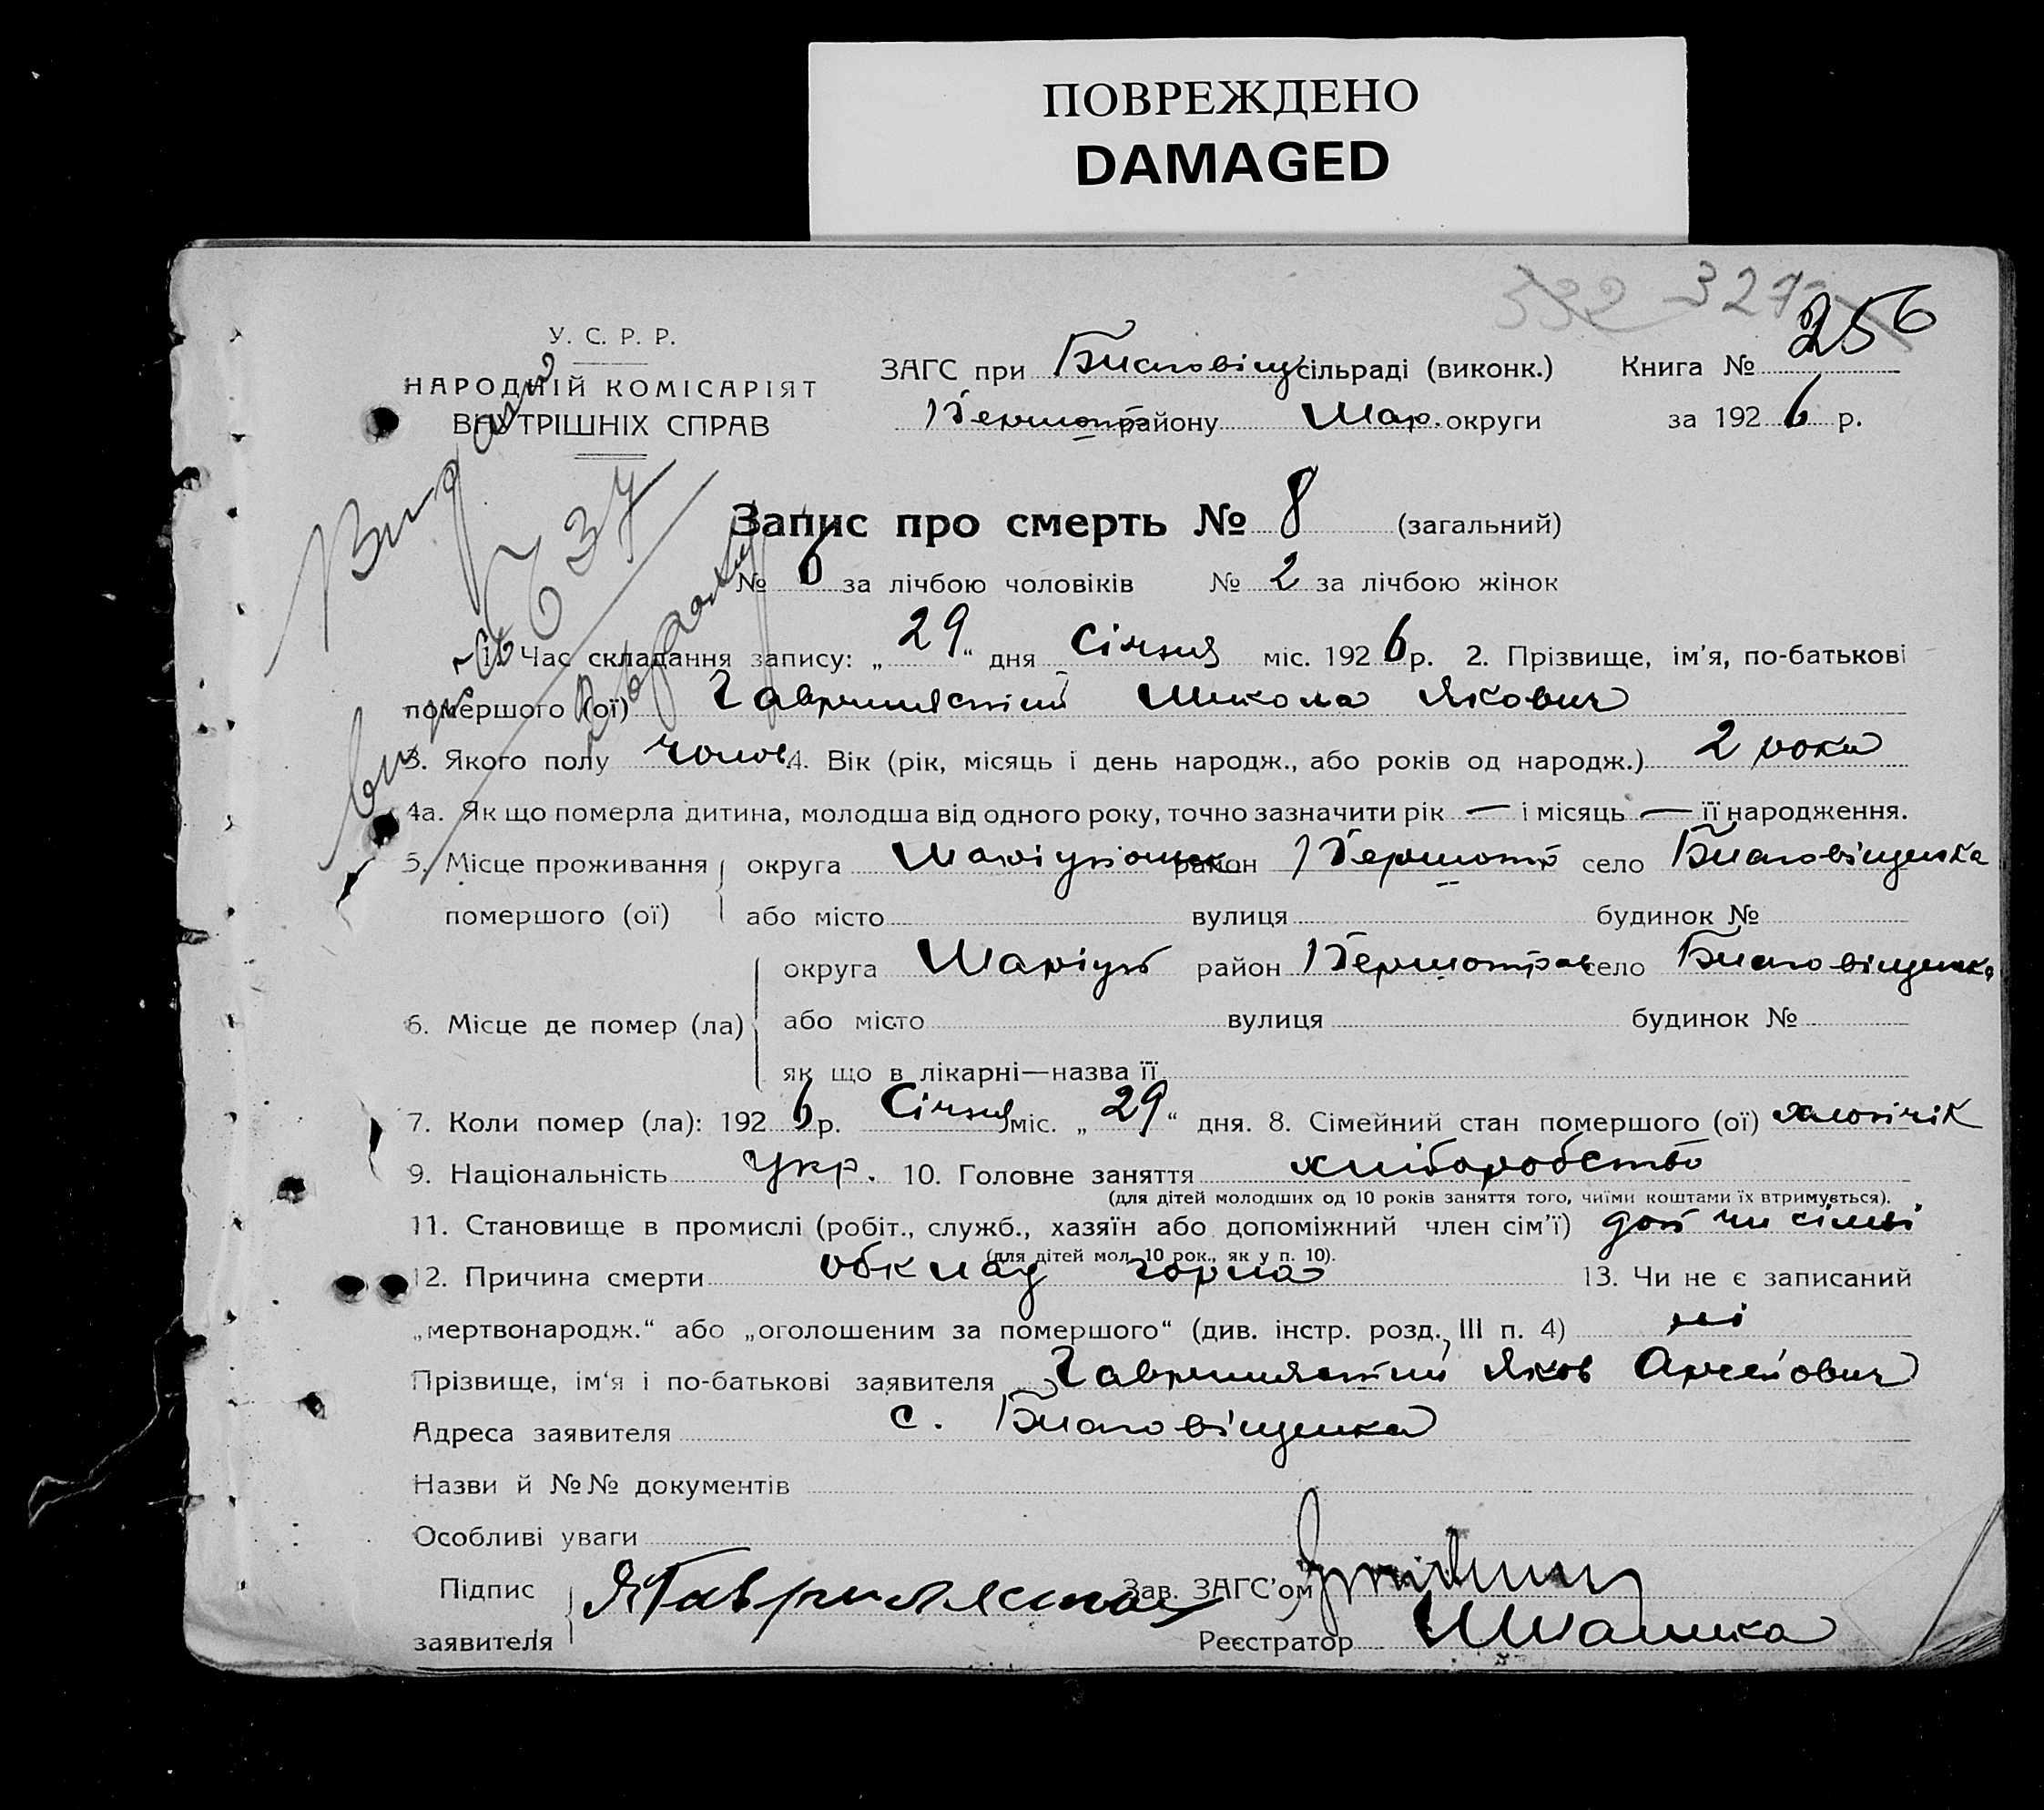 ПОВРЕЖДЕНО
DAMAGED
532 327
256
У. С. Р. Р.
НАРОДНІЙ КОМІСАРІЯТ
ВНУТРІШНІХ СПРАВ
ЗАГС при Благовіщ сільраді (виконк.) Книга №
району Мар. округи за 1926 р.
Видано
637
Запис про смерть № 8 (загальний)
№ 6 за лічбою чоловіків № 2 за лічбою жінок
1. Час складання запису: „29“ дня Січня міс. 1926 р. 2. Прізвище, ім’я, по-батькові
помершого (ої) Гаврилястий Микола Якович
3. Якого полу чолов. 4. Вік (рік, місяць і день народж., або років од народж.) 2 роки
4а. Як що померла дитина, молодша від одного року, точно зазначити рік — і місяць — її народження.
5. Місце проживання округа район село Благовіщенка
помершого (ої) або місто вулиця будинок №
округа Маріуп район село Благовіщенка
6. Місце де помер (ла) або місто вулиця будинок №
як що в лікарні—назва її
7. Коли помер (ла): 1926 р. Січня міс. „29“ дня. 8. Сімейний стан помершого (ої) хлопчік
9. Національність укр. 10. Головне заняття хліборобство
(для дітей молодших од 10 років заняття того, чиїми коштами їх втримується).
11. Становище в промислі (робіт., служб., хазяїн або допоміжний член сім’ї) доп чл сімьї
(для дітей мол. 10 рок., як у п. 10).
12. Причина смерти обклад горла 13. Чи не є записаний
„мертвонародж.“ або „оголошеним за помершого“ (див. інстр. розд., III п. 4) ні
Прізвище, ім‘я і по-батькові заявителя Гаврилястий Яков
Адреса заявителя с. Благовіщенка
Назви й №№ документів
Особливі уваги
Підпис Зав. ЗАГС’ом
заявителя Реєстратор